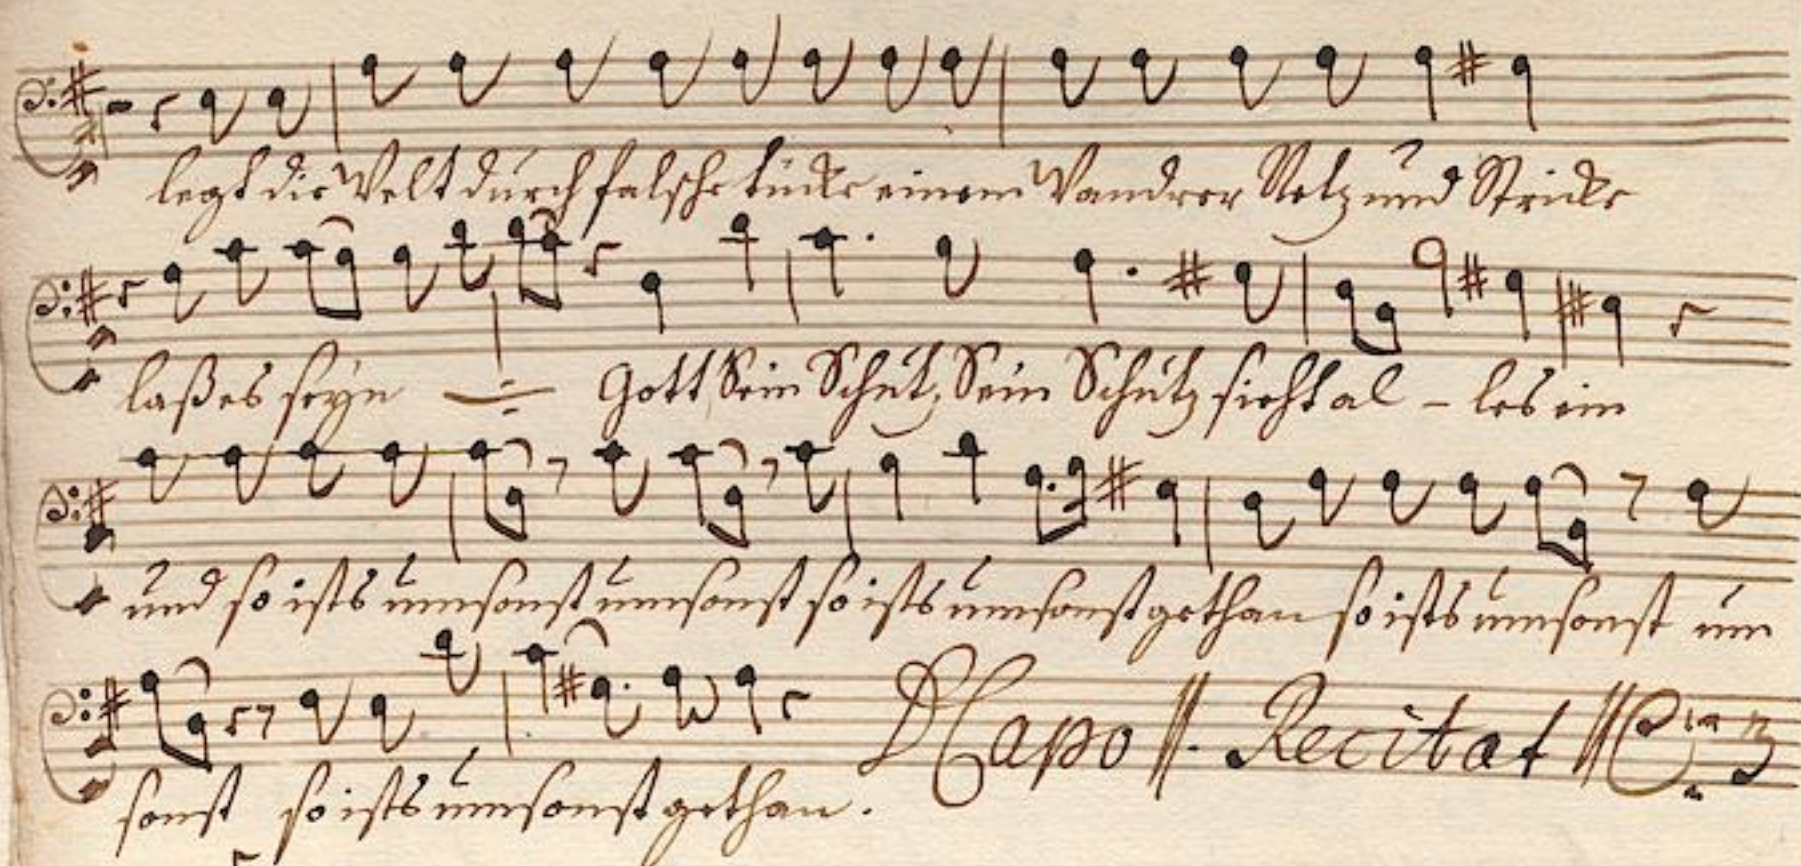 legt die Welt durch falsche tücke einem Wandrer Netz und Stricke
laß es seyn Gott Sein Schutz, Sein Schutz sieht al - les ein
und so ists umsonst umsonst so ists umsonst gethan so ists umsonst um
sonst so ists umsonst gethan. DCapo Recitat